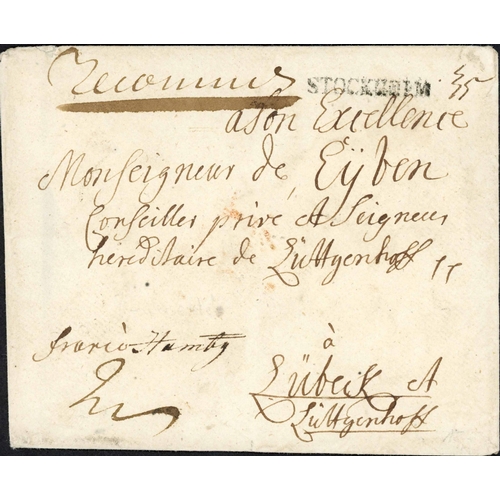 Recommis
STOCKHOLM
a Son Excellence
Monseigneur de Eÿben
Conseiller privé et Seigneur
hereditaire de Lüttgenhoff
franco Hambg
à
Lübeck et
Lüttgenhoff